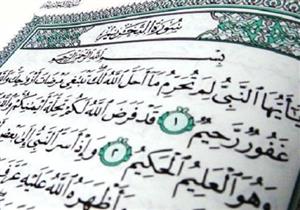 سُورَةُ التَّحْرِيمِ
بِسْمِ اللَّهِ الرَّحْمَٰنِ الرَّحِيمِ
يَٰٓأَيُّهَا ٱلنَّبِيُّ لِمَ تُحَرِّمُ مَآ أَحَلَّ ٱللَّهُ لَكَ تَبْتَغِي مَرْضَاتَ أَزْوَٰجِكَ
غَفُورٌ رَّحِيمٌ ١ قَدْ فَرَضَ ٱللَّهُ لَكُمْ تَحِلَّةَ أَيْمَٰنِكُمْ
وَهُوَ ٱلْعَلِيمُ ٱلْحَكِيمُ ٢ وَإِذْ أَسَرَّ ٱلنَّبِيُّ إِلَىٰ بَعْضِ
وَأَظْهَرَهُ ٱللَّهُ عَلَيْهِ عَرَّفَ